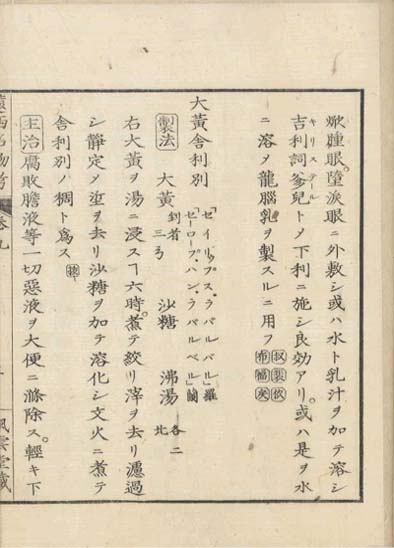 焮腫眼。墮涙眼ニ外敷シ或ハ水ト乳汁ヲ加テ溶シ
吉利詞爹兒トメ下利ニ施シ良効アリ。或ハ是ヲ水
キリステール
ニ溶メ龍腦乳ヲ製スルニ用フ
大黄舎利別
「セイリップス・ラバルバル」羅
「セーロープ・ハン・ラバルベル」蘭
製法 大黄 剉者 三弓 沙糖 沸湯 各二
右大黄ヲ湯ニ浸スヿ六時。煮テ絞リ滓ヲ去リ濾過
シ靜定メ垽ヲ去リ沙糖ヲ加テ溶化シ文火ニ煮テ
舎利別ノ稠ト爲ス
主治 腐敗膽液等一切惡液ヲ大便ニ滌除ス。輕キ下
風雲堂藏